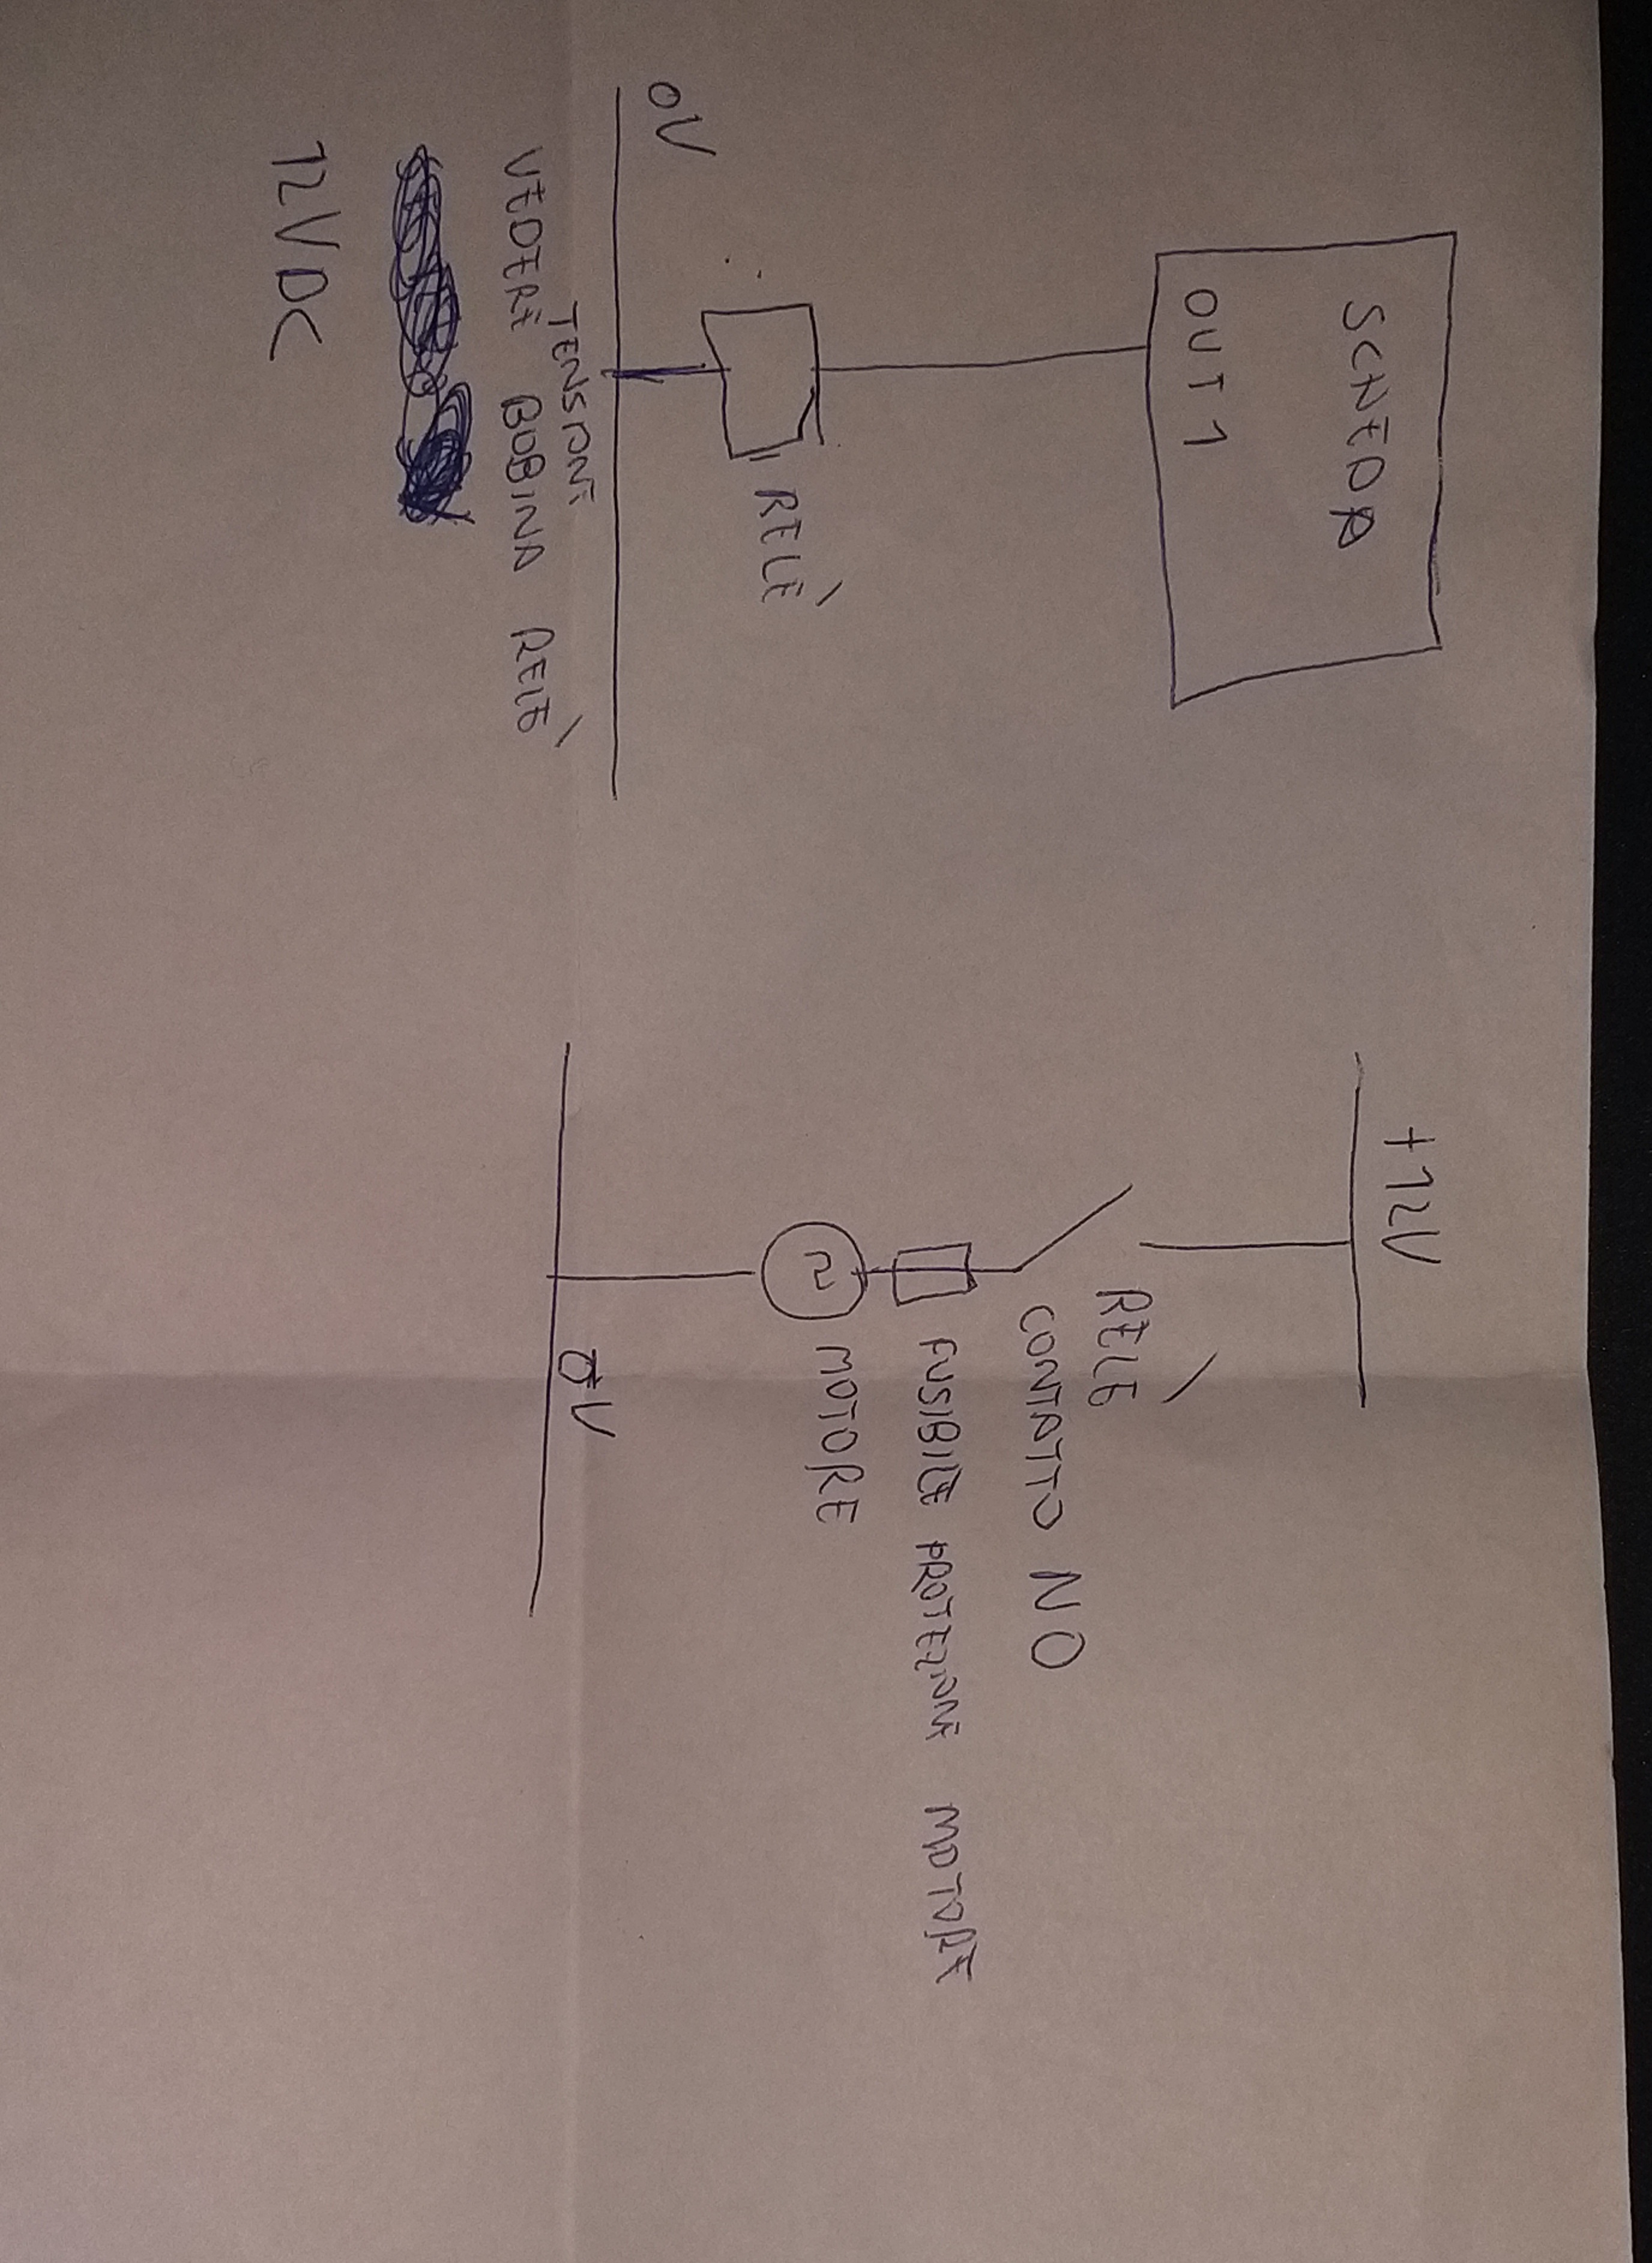 SCHEDA
OUT 1
RELÈ
0V
TENSIONE
VEDERE BOBINA RELÈ
12VDC
+12V
RELÈ
CONTATTO NO
FUSIBILE PROTEZIONE MOTORE
MOTORE
0V